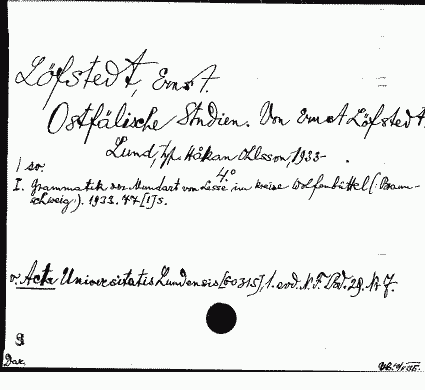 Löfstedt, Ernst.
Ostfälische Studien. Von Ernst Löfstedt.
Lund, Håkan Ohlsson, 1933-
4.°
I. Grammatik der Mundart von Lesse im Kreise Wolfenbüttel (Braun-
schweig). 1933. 77 [1] S.
Acta Universitatis Lundensis [60315], 1. avd. N. F. Bd. 29. Nr 7.